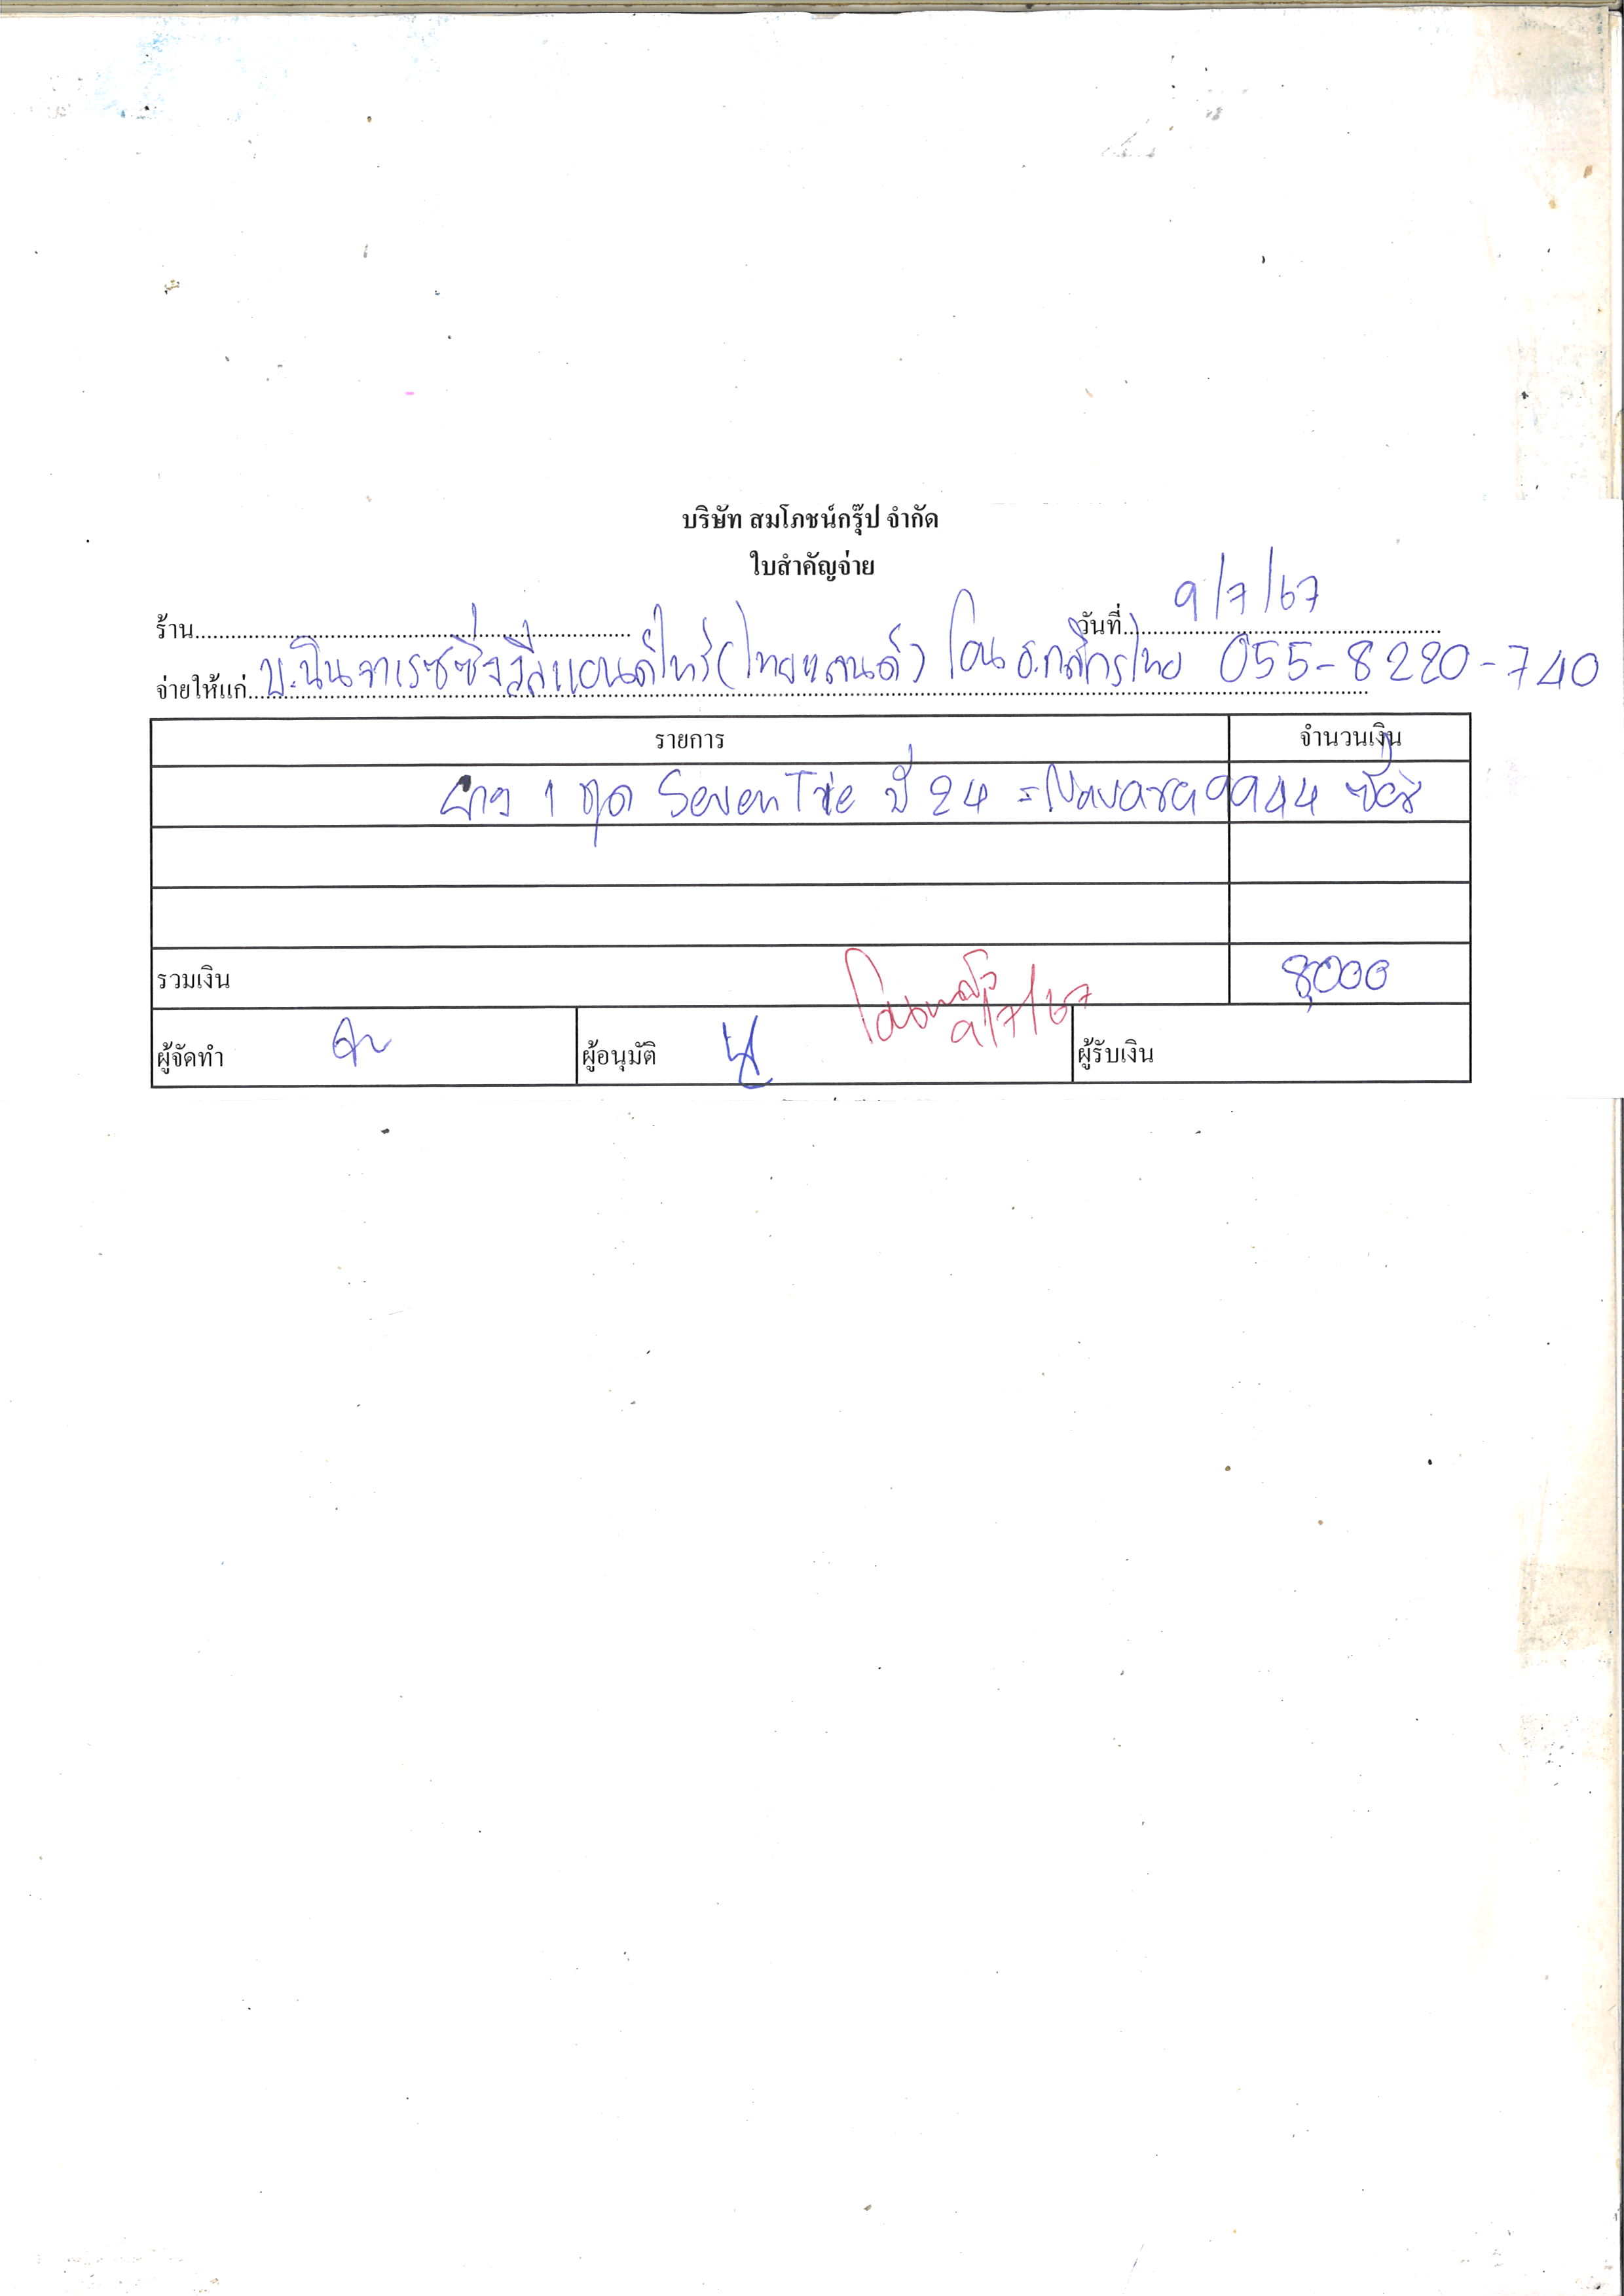 บริษัท สมโภชน์กรุ๊ป จำกัด
ใบสำคัญจ่าย
ร้าน วันที่ 9/7/67
จ่ายให้แก่ บ.นินจาเรซซิ่งวีลแอนด์ไทร์(ไทยแลนด์) โอน ธ.กสิกรไทย 055-8220-740
รายการ จำนวนเงิน
ยาง 1 ชุด Seven Tire ปี 24 = Navara 9944
รวมเงิน 8,000
โอนแล้ว
9/7/67
ผู้จัดทำ ผู้อนุมัติ ผู้รับเงิน